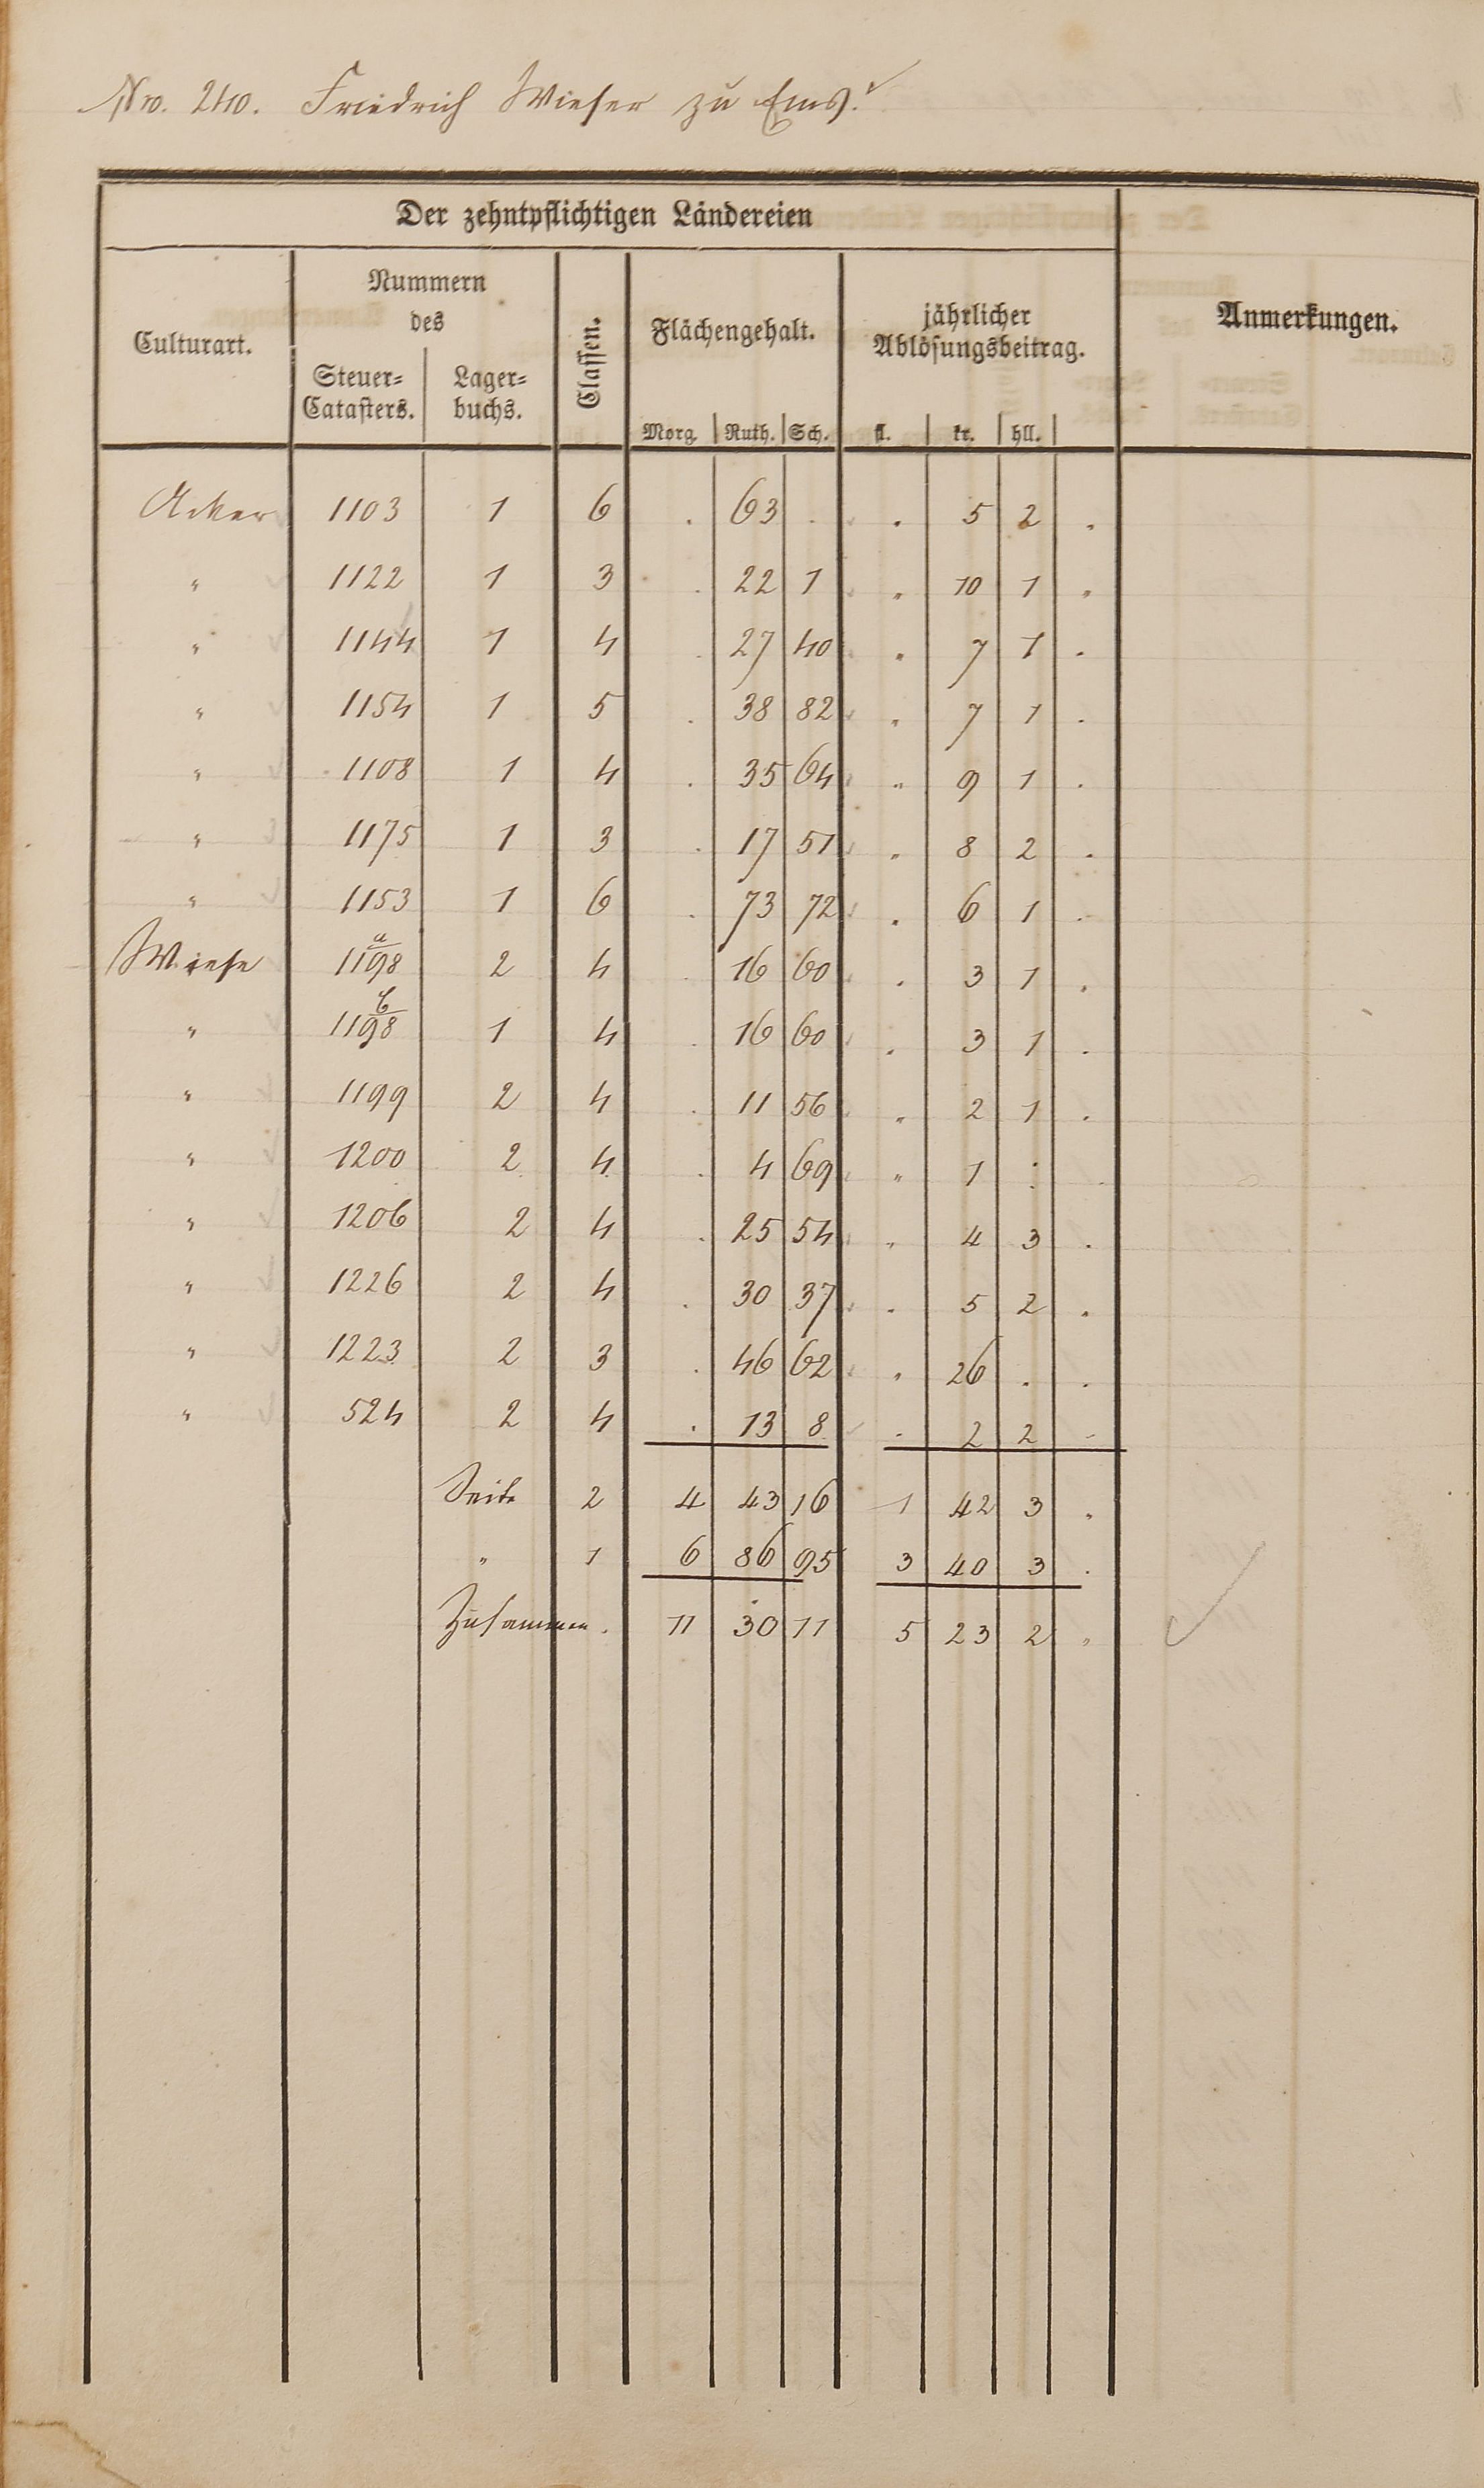 Nro. 240. Friedrich Wieser zu Ems.
Der zehntpflichtigen Ländereien
Anmerkungen.
Culturart.
Nummern
des
Steuer=
Catasters.
Lager=
buchs.
Classen.
Flächengehalt.
Morg. Ruth. Sch.
jährlicher
Ablösungsbeitrag.
fl. kr. hll.
Acker 1103 1 6 . 63 . . 5 2 .
" 1122 1 3 . 22 1 " 10 1 "
" 1144 1 4 . 27 40 " 7 1 .
" 1154 1 5 . 38 82 " 7 1 .
" 1108 1 4 . 35 64 " 9 1 .
" 1175 1 3 . 17 51 " 8 2 .
" 1153 1 6 . 73 72 . 6 1 .
Wiese 1198 a 2 4 . 16 60 . 3 1 .
" 1198 b 1 4 . 16 60 . 3 1 .
" 1199 2 4 . 11 56 " 2 1 .
" 1200 2 4 . 4 69 " 1 . .
" 1206 2 4 . 25 54 " 4 3 .
" 1226 2 4 . 30 37 . 5 2 .
" 1223 2 3 . 46 62 " 26 . .
" 524 2 4 . 13 8 . 2 2 .
Seite 2 4 43 16 1 42 3 "
" 1 6 86 95 3 40 3 .
Zusammen. 11 30 11 5 23 2 "